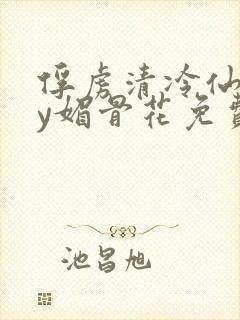 俘虏清冷仙
y媚骨花免费
池昌旭